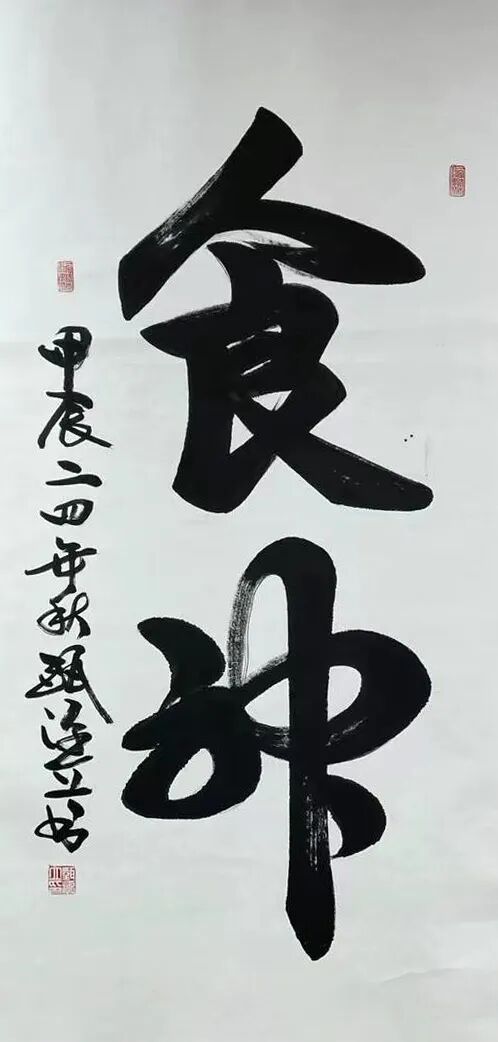 食神
甲辰二四年秋